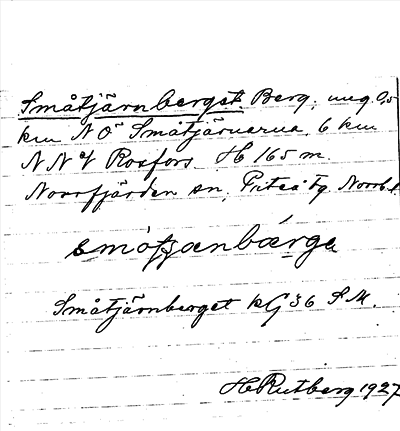 Småtjärnberget. Berg, ung. 0,5
km NÖ Småtjärnarna, 6 km
NNV Rosfors. H 165 m.
Norrfjärden sn, Piteå tg, Norrb. l.
Småtjärnberget kG 36 S.M.
H Rutberg 1927